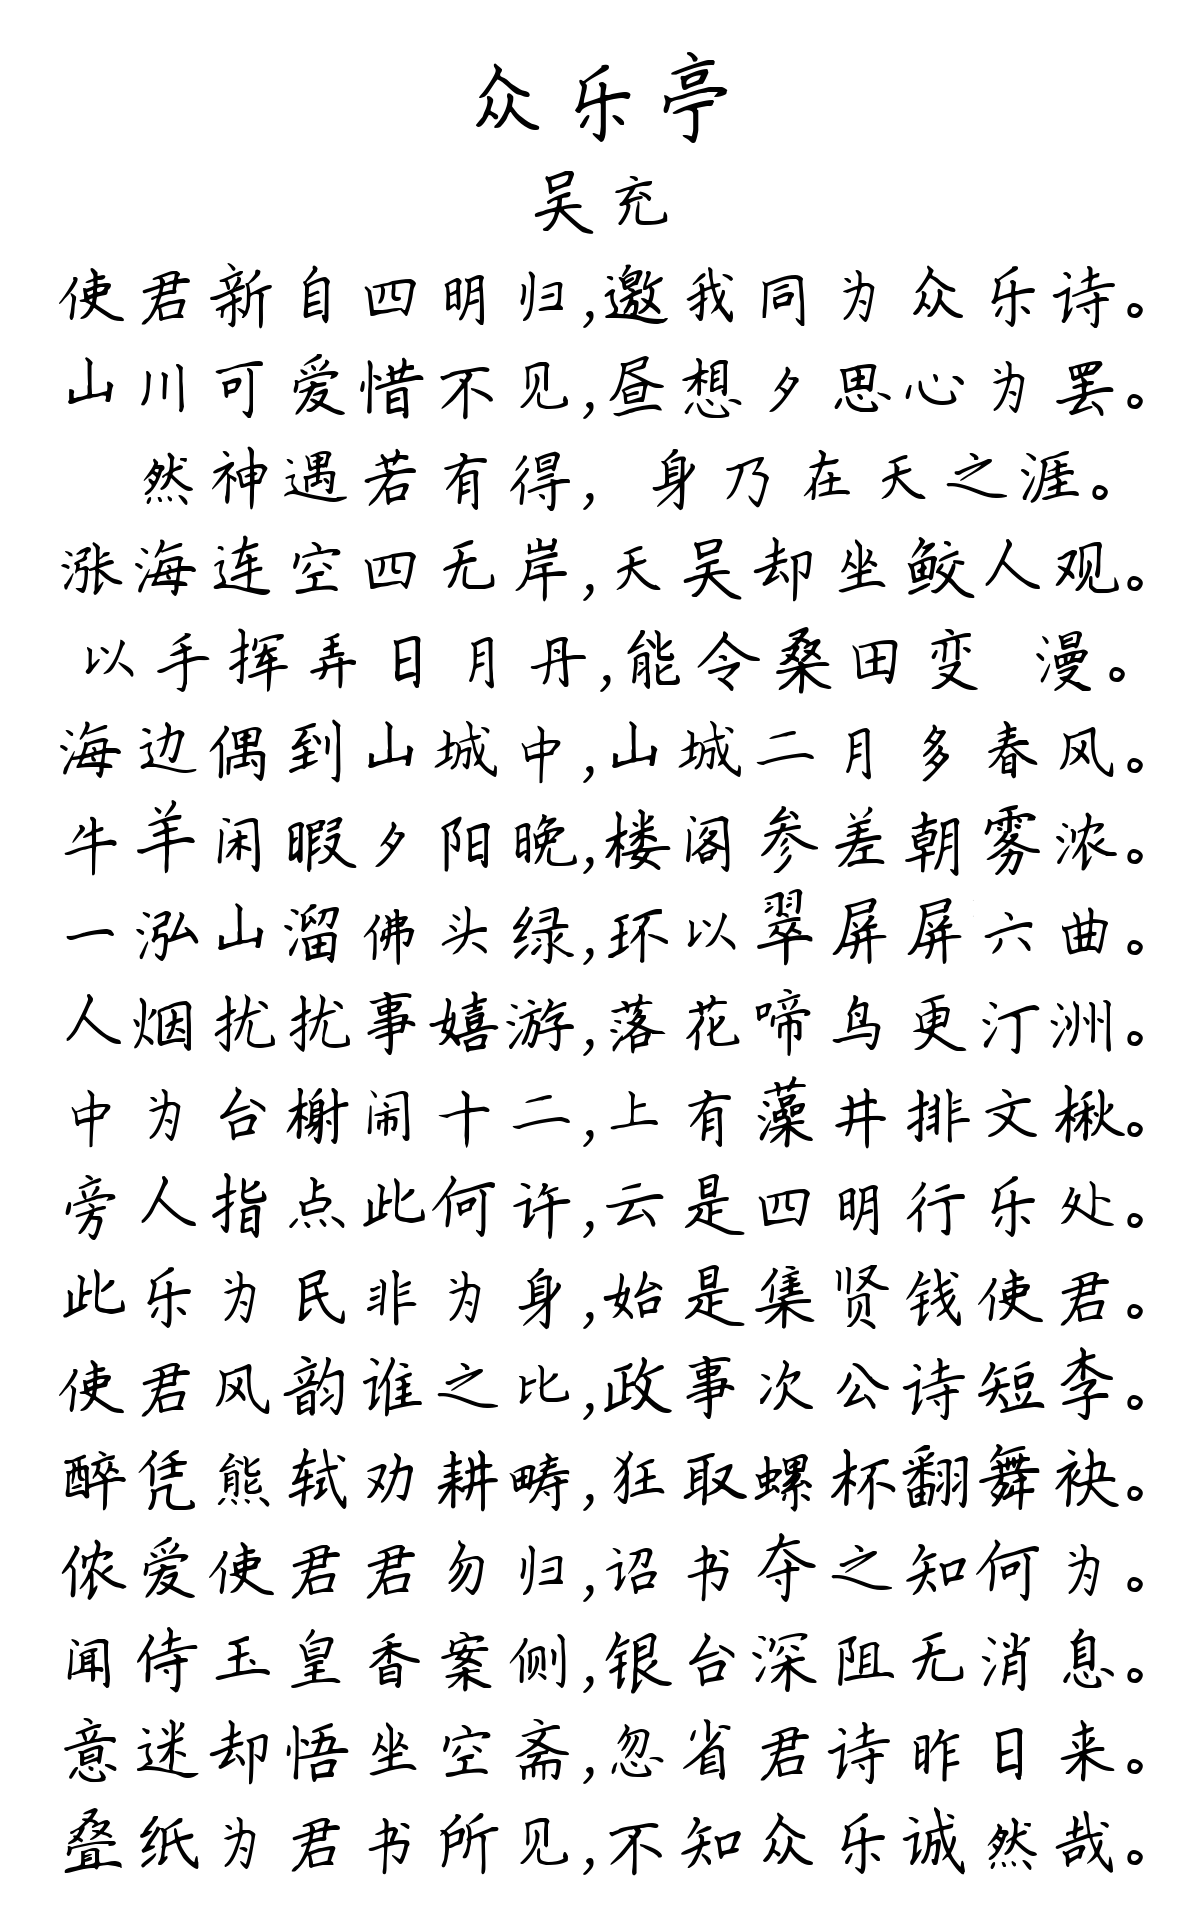 众乐亭
吴充
使君新自四明归,邀我同为众乐诗。
山川可爱惜不见,昼想夕思心为罢。
然神遇若有得,身乃在天之涯。
涨海连空四无岸,天吴却坐鲛人观。
以手挥弄日月丹,能令桑田变 漫。
海边偶到山城中,山城二月多春风。
牛羊闲暇夕阳晚,楼阁参差朝雾浓。
一泓山溜佛头绿,环以翠屏屏六曲。
人烟扰扰事嬉游,落花啼鸟更汀洲。
中为台榭闹十二,上有藻井排文楸。
旁人指点此何许,云是四明行乐处。
此乐为民非为身,始是集贤钱使君。
使君风韵谁之比,政事次公诗短李。
醉凭熊轼劝耕畴,狂取螺杯翻舞袂。
侬爱使君君勿归,诏书夺之知何为。
闻侍玉皇香案侧,银台深阻无消息。
意迷却悟坐空斋,忽省君诗昨日来。
叠纸为君书所见,不知众乐诚然哉。